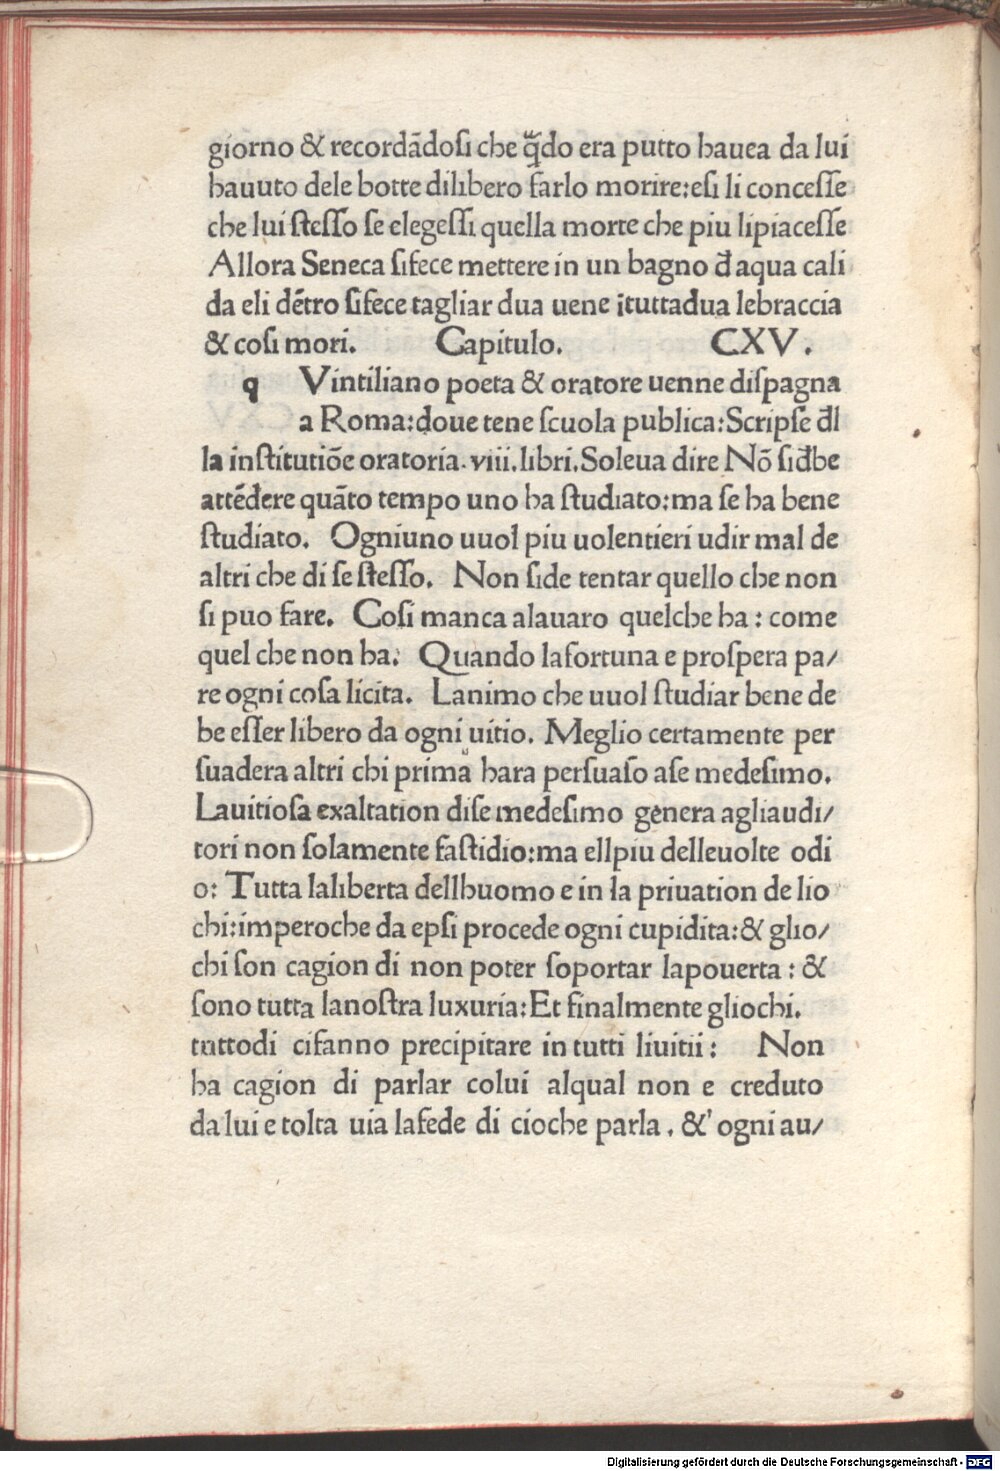 giorno & recordādoſi che q̄do era putto hauea da lui
hauuto dele botte dilibero farlo morire:eſi li conceſſe
che lui ſteſſo ſe elegeſſi quella morte che piu lipiaceſſe
Allora Seneca ſifece mettere in un bagno đ aqua cali
da eli dētro ſifece tagliar dua uene ituttadua lebraccia
& coſi mori. Capitulo. CXV.
q Vintiliano poeta & oratore uenne diſpagna
a Roma:doue tene ſcuola publica:Scripſe đl
la inſtitutiōe oratoria.viii.libri.Soleua dire Nō ſiđbe
attēđere quāto tempo uno ha ſtudiato:ma ſe ha bene
ſtudiato. Ogniuno uuol piu uolentieri udir mal de
altri che di ſe ſteſſo. Non ſide tentar quello che non
ſi puo fare. Coſi manca alauaro quelche ha: come
quel che non ha. Quando lafortuna e proſpera pa/
re ogni coſa licita. Lanimo che uuol ſtudiar bene de
be eſſer libero da ogni uitio. Meglio certamente per
ſuadera altri chi prima hara perſuaſo aſe medeſimo.
Lauitioſa exaltation diſe medeſimo genera agliaudi/
tori non ſolamente faſtidio:ma ellpiu delleuolte odi
o: Tutta laliberta dellhuomo e in la priuation de lio
chi:imperoche da epſi procede ogni cupidita:& glio/
chi ſon cagion di non poter ſoportar lapouerta: &
ſono tutta lanoſtra luxuria:Et finalmente gliochi.
tuttodi cifanno precipitare in tutti liuitii: Non
ha cagion di parlar colui alqual non e creduto
da lui e tolta uia lafede di cioche parla. & ogni au/
Digitalisierung gefördert durch die Deutsche Forschungsgemeinschaft - DFG